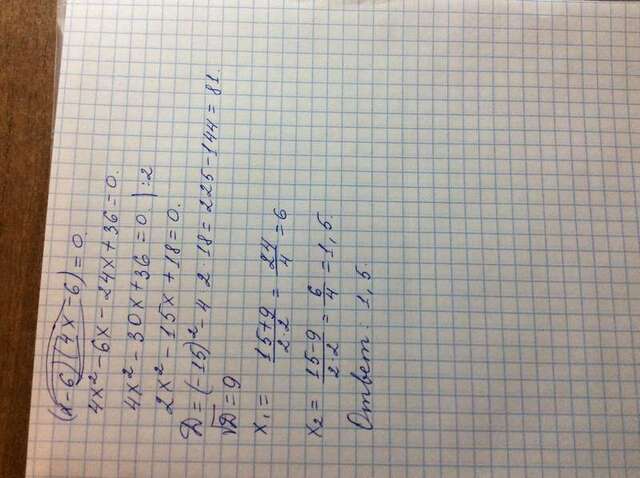 (x-6)(4x-6)=0.
4x²-6x-24x+36=0.
4x²-30x+36=0. | :2
2x²-15x+18=0.
D=(-15)²-4 2·18=225-144=81.
√D=9
x₁= 15+9/2·2 = 24/4 = 6
x₂= 15-9/2·2 = 6/4 = 1,5.
Ответ: 1,5.